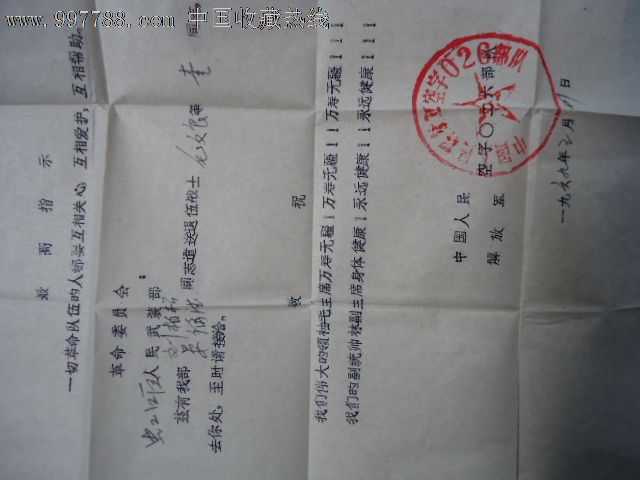 www.997788.com 中国收藏热线
最高指示
一切革命队伍的人都要互相关心,互相爱护,互相帮助。
革命委员会:
人民武装部
兹有我部 同志遣送退伍战士 等 同志
去你处,至时请接洽。
敬祝
我们伟大的领袖毛主席万寿无疆!万寿无疆!!万寿无疆!!!
我们的副统帅林副主席身体健康!永远健康!!永远健康!!!
中国人民
解放军
空字〇二六部队
一九六九年三月 日